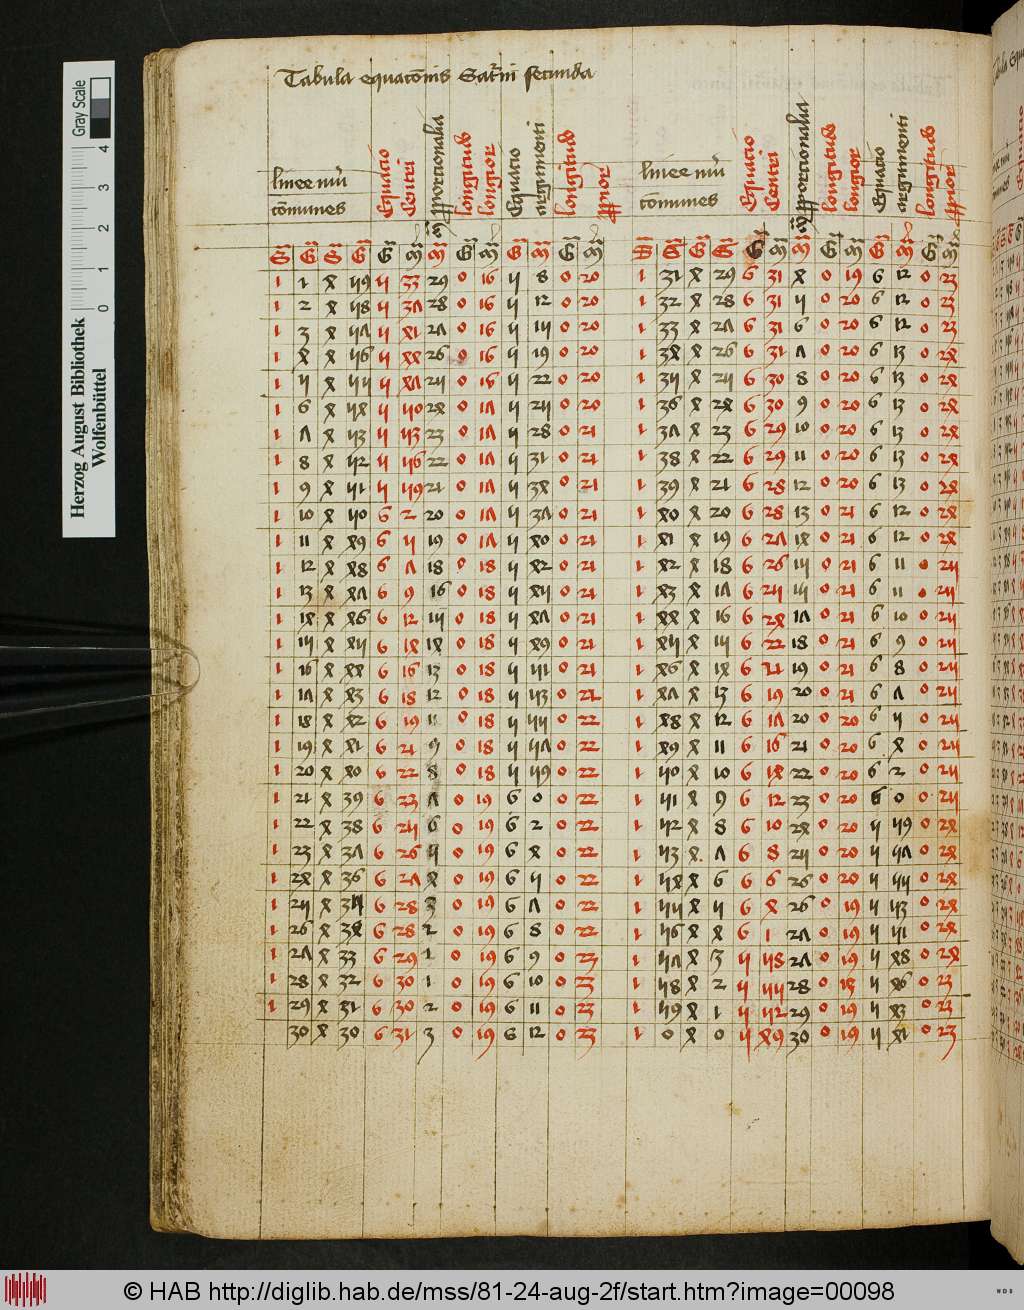 Tabula equaconis Satrni secunda
linee nūi
cōmunes
Equacio
Centri
mᵃ proporcionalia
longitudo
longior
Equacio
argumenti
longitudo
propior
linee nūi
cōmunes
Equacio
Centri
mᵃ proporcionalia
longitudo
longior
Equacio
argumenti
longitudo
propior
S G S G G m m G m G m G m S G S G G m m G m G m G m
1 1 4 59 5 33 29 0 16 5 8 0 20 1 31 4 29 6 31 4 0 19 6 12 0 23
1 2 4 58 5 37 28 0 16 5 12 0 20 1 32 4 28 6 31 5 0 20 6 12 0 23
1 3 4 57 5 41 27 0 16 5 15 0 20 1 33 4 27 6 31 6 0 20 6 12 0 23
1 4 4 56 5 44 26 0 16 5 19 0 20 1 34 4 26 6 31 7 0 20 6 13 0 24
1 5 4 55 5 47 25 0 16 5 22 0 20 1 35 4 25 6 30 8 0 20 6 13 0 24
1 6 4 54 5 50 24 0 17 5 25 0 20 1 36 4 24 6 30 9 0 20 6 13 0 24
1 7 4 53 5 53 23 0 17 5 28 0 21 1 37 4 23 6 29 10 0 20 6 13 0 24
1 8 4 52 5 56 22 0 17 5 31 0 21 1 38 4 22 6 29 11 0 20 6 13 0 24
1 9 4 51 5 59 21 0 17 5 34 0 21 1 39 4 21 6 28 12 0 20 6 13 0 24
1 10 4 50 6 2 20 0 17 5 37 0 21 1 40 4 20 6 28 13 0 21 6 12 0 24
1 11 4 49 6 5 19 0 17 5 40 0 21 1 41 4 19 6 27 14 0 21 6 12 0 24
1 12 4 48 6 7 18 0 18 5 42 0 21 1 42 4 18 6 26 15 0 21 6 11 0 25
1 13 4 47 6 9 16 0 18 5 45 0 21 1 43 4 17 6 25 15 0 21 6 11 0 25
1 14 4 46 6 12 15 0 18 5 47 0 21 1 44 4 16 6 24 17 0 21 6 10 0 25
1 15 4 45 6 14 14 0 18 5 49 0 21 1 45 4 15 6 22 18 0 21 6 9 0 25
1 16 4 44 6 16 13 0 18 5 51 0 21 1 46 4 14 6 21 19 0 21 6 8 0 25
1 17 4 43 6 18 12 0 18 5 53 0 21 1 47 4 13 6 19 20 0 21 6 7 0 25
1 18 4 42 6 19 11 0 18 5 55 0 22 1 48 4 12 6 17 20 0 20 6 5 0 25
1 19 4 41 6 21 9 0 18 5 57 0 22 1 49 4 11 6 16 21 0 20 6 4 0 25
1 20 4 40 6 22 8 0 18 5 59 0 22 1 50 4 10 6 14 22 0 20 6 2 0 25
1 21 4 39 6 23 7 0 19 6 0 0 22 1 51 4 9 6 12 23 0 20 6 0 0 25
1 22 4 38 6 25 6 0 19 6 2 0 22 1 52 4 8 6 10 24 0 20 5 59 0 24
1 23 4 37 6 26 5 0 19 6 4 0 22 1 53 4 7 6 8 25 0 20 5 57 0 24
1 24 4 36 6 27 4 0 19 6 5 0 22 1 54 4 6 6 6 26 0 20 5 55 0 24
1 25 4 35 6 28 3 0 19 6 7 0 22 1 55 4 5 6 4 26 0 19 5 53 0 24
1 26 4 34 6 28 2 0 19 6 8 0 22 1 56 4 4 6 1 27 0 19 5 51 0 24
1 27 4 33 6 29 1 0 19 6 9 0 23 1 57 4 3 5 58 27 0 19 5 48 0 24
1 28 4 32 6 30 1 0 19 6 10 0 23 1 58 4 2 5 55 28 0 19 5 46 0 23
1 29 4 31 6 30 2 0 19 6 11 0 23 1 59 4 1 5 52 29 0 19 5 43 0 23
30 4 30 6 31 3 0 19 6 12 0 23 1 0 4 0 5 49 30 0 19 5 41 0 23
Herzog August Bibliothek
Wolfenbüttel
0 1 2 3 4
Gray Scale
© HAB http://diglib.hab.de/mss/81-24-aug-2f/start.htm?image=00098